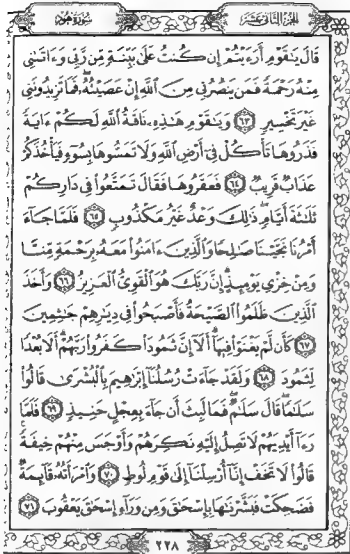 الجزء الثاني عشر
سورة هود
قَالَ يَٰقَوْمِ أَرَءَيْتُمْ إِن كُنتُ عَلَىٰ بَيِّنَةٍ مِّن رَّبِّى وَءَاتَىٰنِى
مِنْهُ رَحْمَةً فَمَن يَنصُرُنِى مِنَ ٱللَّهِ إِنْ عَصَيْتُهُۥ فَمَا تَزِيدُونَنِى
غَيْرَ تَخْسِيرٍ ٦٣ وَيَٰقَوْمِ هَٰذِهِۦ نَاقَةُ ٱللَّهِ لَكُمْ ءَايَةً
فَذَرُوهَا تَأْكُلْ فِىٓ أَرْضِ ٱللَّهِ وَلَا تَمَسُّوهَا بِسُوٓءٍ فَيَأْخُذَكُمْ
عَذَابٌ قَرِيبٌ ٦٤ فَعَقَرُوهَا فَقَالَ تَمَتَّعُوا۟ فِى دَارِكُمْ
ثَلَٰثَةَ أَيَّامٍ ۖ ذَٰلِكَ وَعْدٌ غَيْرُ مَكْذُوبٍ ٦٥ فَلَمَّا جَآءَ
أَمْرُنَا نَجَّيْنَا صَٰلِحًا وَٱلَّذِينَ ءَامَنُوا۟ مَعَهُۥ بِرَحْمَةٍ مِّنَّا
وَمِنْ خِزْىِ يَوْمِئِذٍ ۗ إِنَّ رَبَّكَ هُوَ ٱلْقَوِىُّ ٱلْعَزِيزُ ٦٦ وَأَخَذَ
ٱلَّذِينَ ظَلَمُوا۟ ٱلصَّيْحَةُ فَأَصْبَحُوا۟ فِى دِيَٰرِهِمْ جَٰثِمِينَ
٦٧ كَأَن لَّمْ يَغْنَوْا۟ فِيهَآ ۗ أَلَآ إِنَّ ثَمُودَا۟ كَفَرُوا۟ رَبَّهُمْ ۗ أَلَا بُعْدًا
لِّثَمُودَ ٦٨ وَلَقَدْ جَآءَتْ رُسُلُنَآ إِبْرَٰهِيمَ بِٱلْبُشْرَىٰ قَالُوا۟
سَلَٰمًا ۖ قَالَ سَلَٰمٌ ۖ فَمَا لَبِثَ أَن جَآءَ بِعِجْلٍ حَنِيذٍ ٦٩ فَلَمَّا
رَءَآ أَيْدِيَهُمْ لَا تَصِلُ إِلَيْهِ نَكِرَهُمْ وَأَوْجَسَ مِنْهُمْ خِيفَةً ۚ
قَالُوا۟ لَا تَخَفْ إِنَّآ أُرْسِلْنَآ إِلَىٰ قَوْمِ لُوطٍ ٧٠ وَٱمْرَأَتُهُۥ قَآئِمَةٌ
فَضَحِكَتْ فَبَشَّرْنَٰهَا بِإِسْحَٰقَ وَمِن وَرَآءِ إِسْحَٰقَ يَعْقُوبَ ٧١
٢٢٨